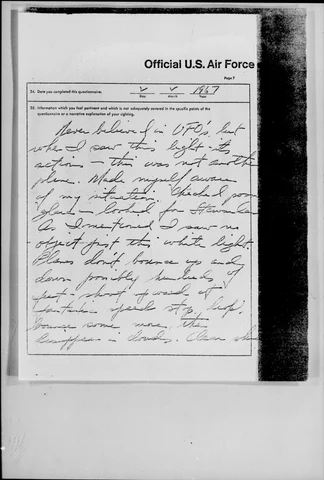 Official U.S. Air Force
Page 7
34. Date you completed this questionnaire:
1967
Day Month Year
35. Information which you feel pertinent and which is not adequately covered in the specific points of the
questionnaire or a narrative explanation of your sighting.
Never believed in UFO's, but
when I saw this light - its
actions - this was not another
plane. Made myself aware
of my situation. Checked
looked for
As I mentioned I saw no
object just this white light.
Planes don't bounce up and
down possibly hundreds of
feet, shoot upwards at
fantastic speeds stop, drop,
bounce some more, then
disappear in clouds.